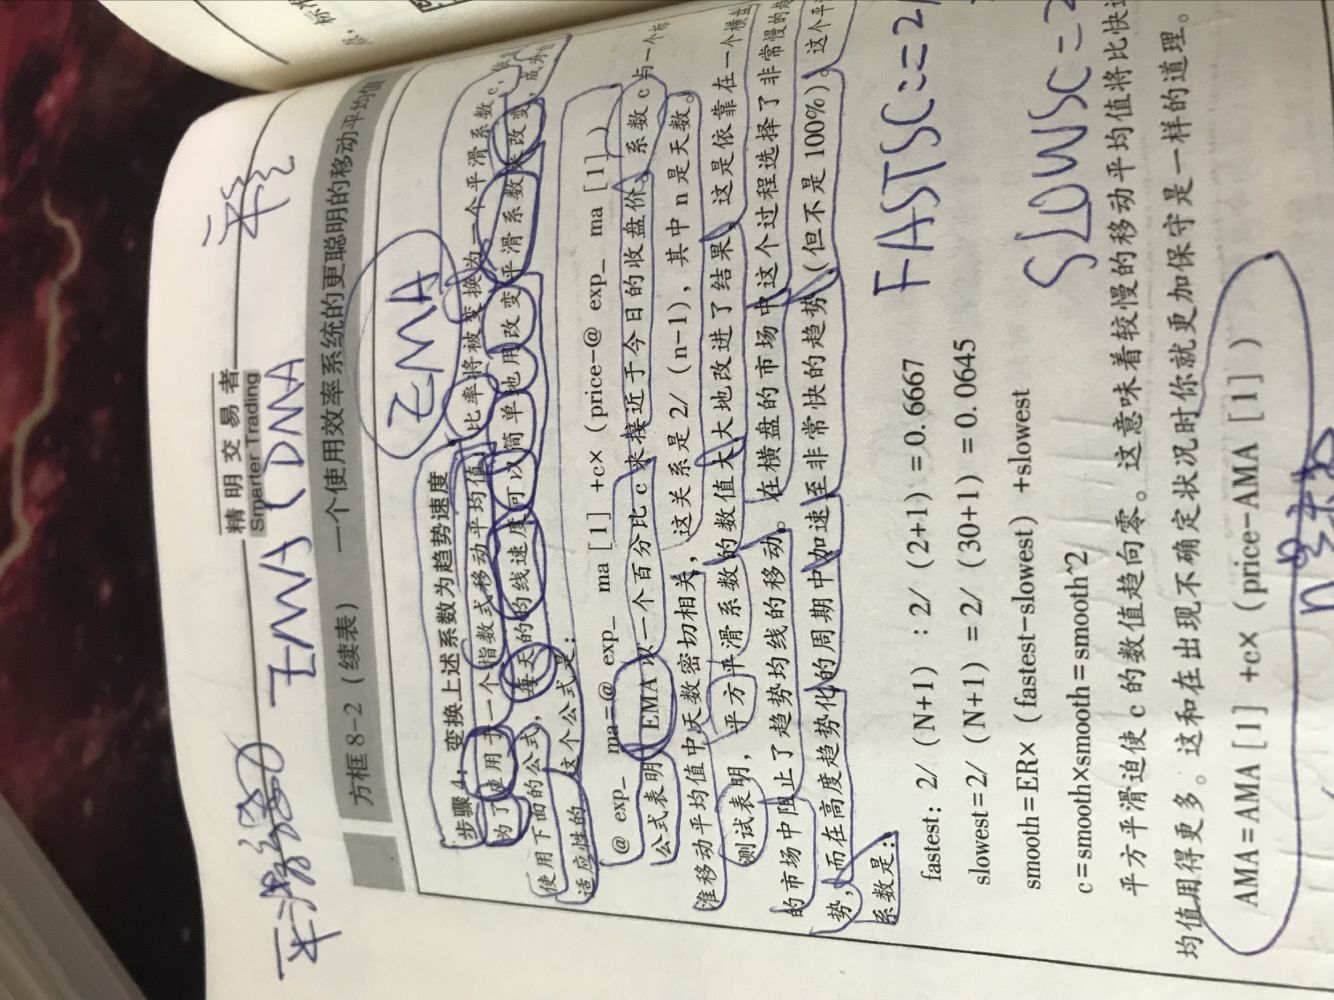 精明交易者
Smarter Trading
EMA (DMA
方框 8-2（续表） 一个使用效率系统的更聪明的移动平均值
EMA
步骤 4，变换上述系数为趋势速度
为了应用于一个指数式移动平均值，比率将被变换为一个平滑系数 c，
每天的均线速度可以简单地用改变平滑系数来改变，成为自
适应性的。这个公式是：
使用下面的公式，
@ exp_ ma=@ exp_ ma [1] +c× (price-@ exp_ ma [1])
公式表明 EMA 以一个百分比 c 来接近于今日的收盘价。系数 c 与一个标
准移动平均值中天数密切相关，这关系是 2/ (n-1)，其中 n 是天数。
测试表明，平方平滑系数的数值大大地改进了结果，这是依靠在一个横盘
的市场中阻止了趋势均线的移动。在横盘的市场中这个过程选择了非常慢的趋
势，而在高度趋势化的周期中加速至非常快的趋势（但不是 100%）。这个平
系数是：
fastest: 2/ (N+1) : 2/ (2+1) =0.6667
FASTSC:=2/
slowest=2/ (N+1) =2/ (30+1) =0.0645
smooth=ER× (fastest-slowest) +slowest
SLOWSC:=2
c=smooth×smooth=smooth^2
平方平滑迫使 c 的数值趋向零。这意味着较慢的移动平均值将比快速
均值用得更多。这和在出现不确定状况时你就更加保守是一样的道理。
AMA=AMA [1] +c× (price-AMA [1])